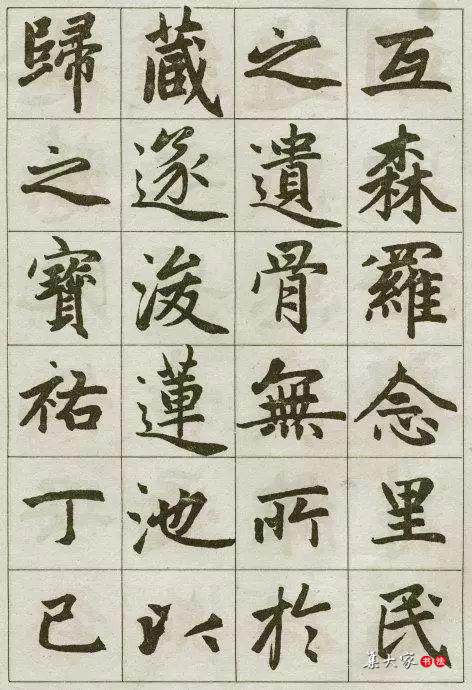 互森羅念里民
之遺骨無所於
藏遂浚蓮池以
歸之寶祐丁巳
集大家书法